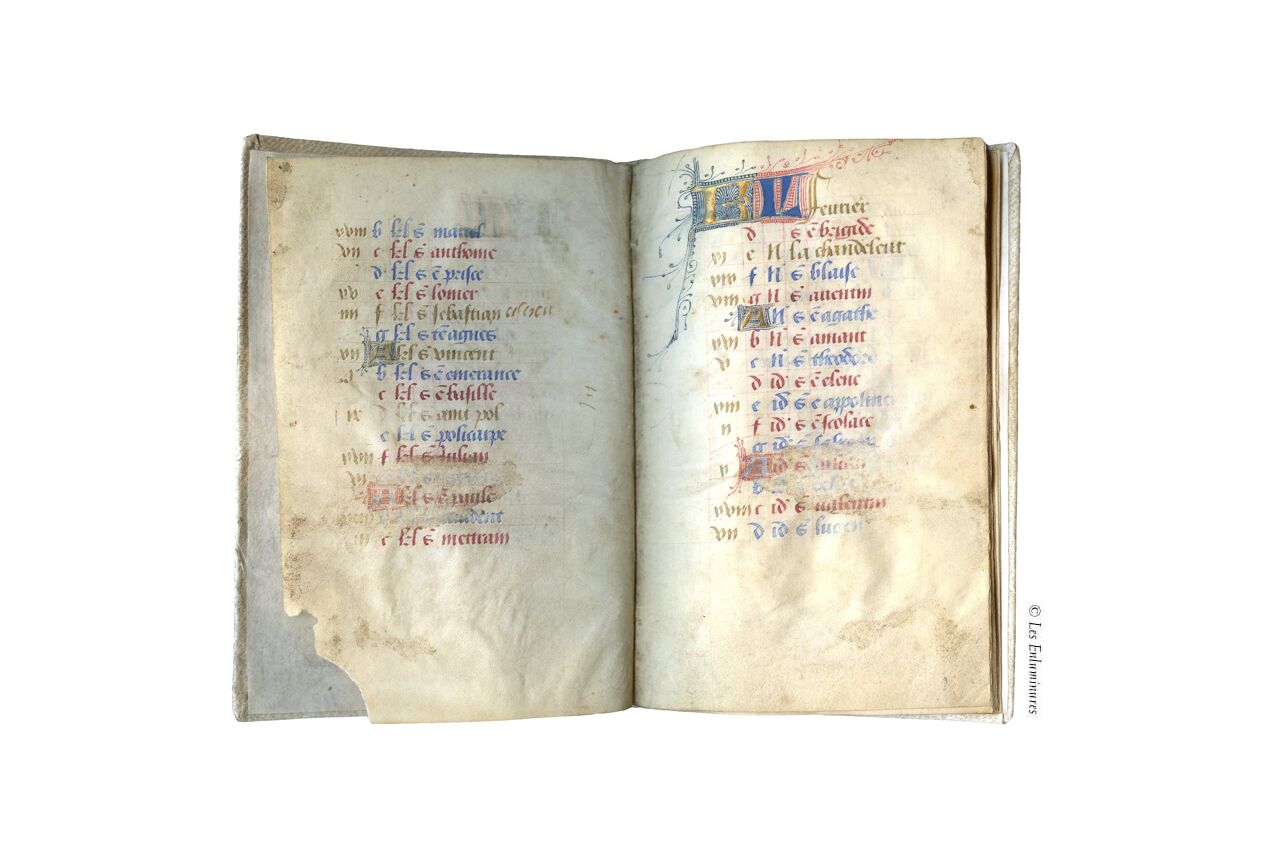 xviii b kl s marcel
vii c kl s anthoine
d kl s ē prisce
xv e kl s lomer
iiii f kl s sebastian
g kl s ē agnes
xii A kl s vincent
b kl s ē emerance
c kl s ē basille
ix d kl s saint pol
e kl s policarpe
xvii f kl s iulian
vi
A kl s ē paule
c kl s mettrain
KL feurier
d s ē brigide
xi e N la chandeleur
xix f N s blaise
viii g N s auentin
A N s ē agathe
xvi b N s amant
v c N s theodore
d id s ē elene
xiii e id s ē appoline
ii f id s ē scolace
g id s
x A id s iulien
b
xviii c id s valentin
vii d id s lucen
© Les Enluminures